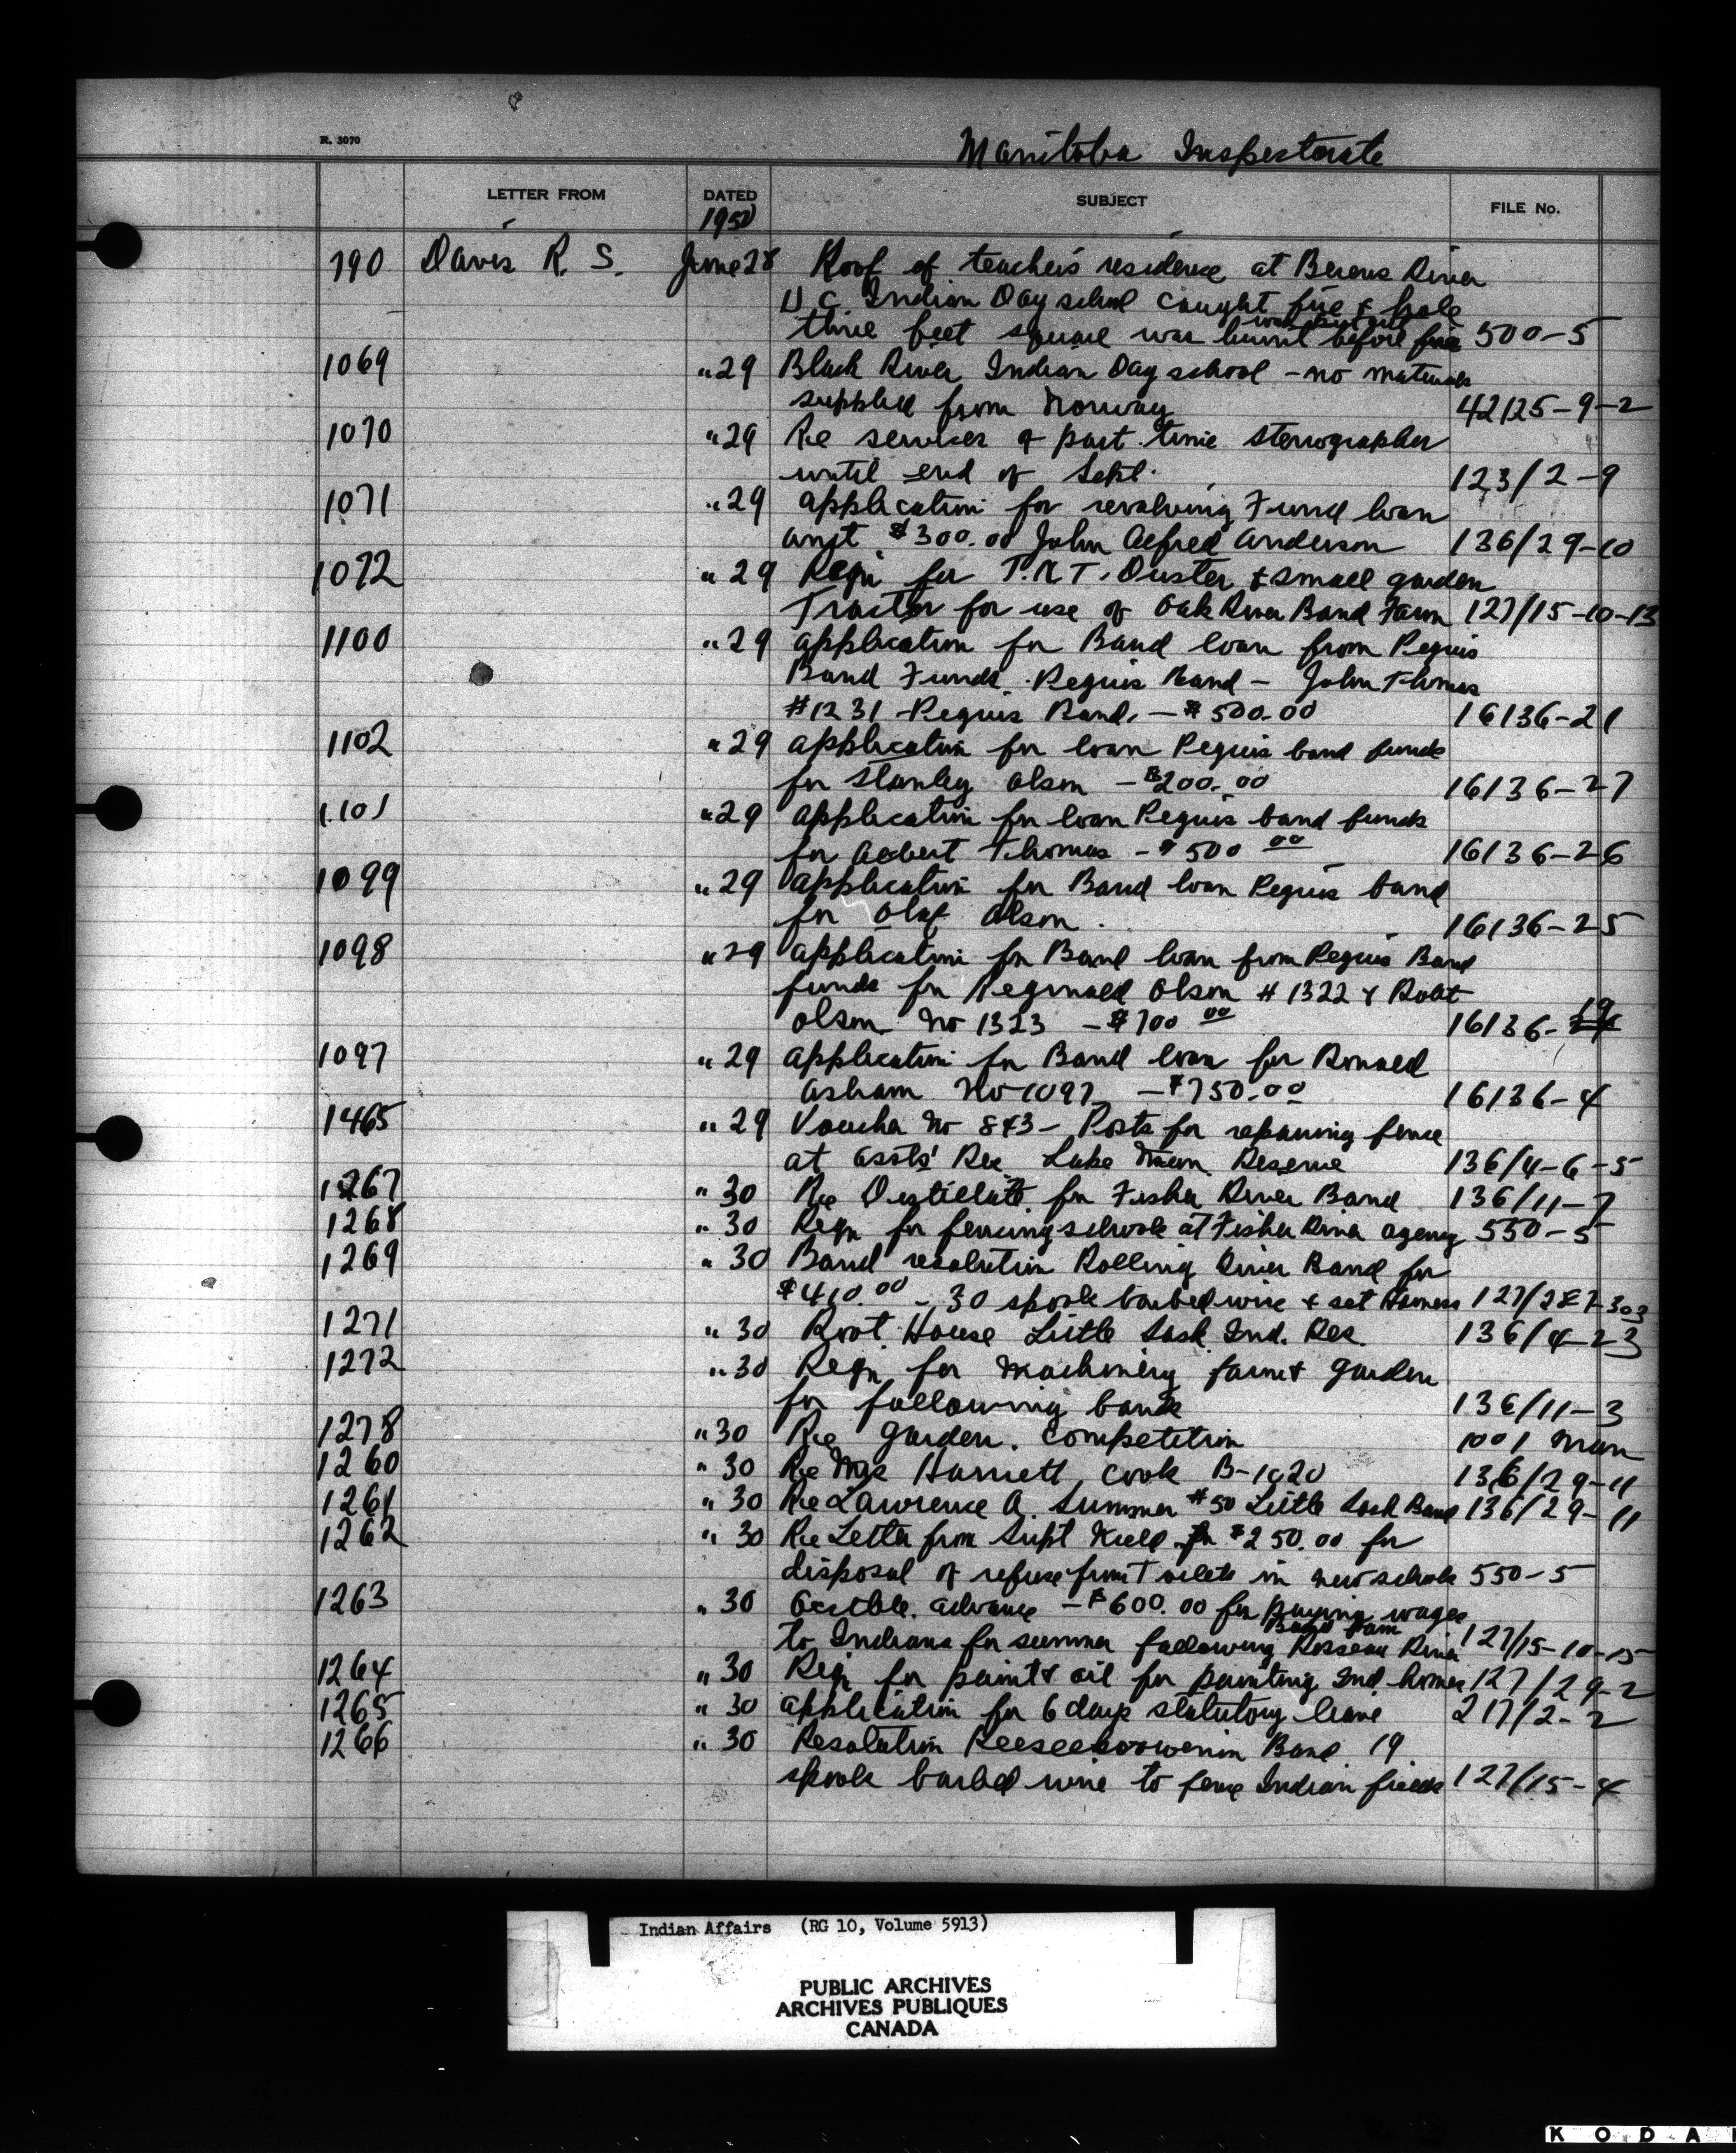 R. 3070
Manitoba Inspectorate
LETTER FROM DATED SUBJECT FILE No.
1950
790 Davis R. S. June 28 Roof of teacher's residence at Berens River
U C Indian Day school caught fire & hole
was put out
three feet square was burnt before fire 500-5
1069 " 29 Black River Indian Day school - no materials
supplied from Norway 42125-9-2
1070 " 29 Re services of part time stenographer
until end of Sept. 123/2-9
1071 " 29 application for revolving Fund loan
amt $300.00 John Alfred Anderson 136/29-10
1072 " 29 Reqn for T.N.T. Duster & small garden
Tractor for use of Oak River Band Farm 127/15-10-13
1100 " 29 application for Band loan from Peguis
Band Funds. Peguis Band - John Thomas
#1231 - Peguis Band. - $500.00 16136-21
1102 " 29 application for loan Peguis band funds
for Stanley Olson - $200.00 16136-27
1101 " 29 application for loan Peguis band funds
for Albert Thomas - $500 00 16136-26
1099 " 29 application for Band loan Peguis band
for Olaf Olson. 16136-25
1098 " 29 application for Band loan from Peguis Band
funds for Reginald Olson # 1322 & Robt
19
Olson No 1323 - $700 00 16136-
1097 " 29 application for Band loan for Ronald
Asham No 1097 - $750.00 16136-4
1465 " 29 Voucher No 843 - Posts for repairing fence
at assts' Res Lake Man. Reserve 136/4-6-5
1267 " 30 Re Distillate for Fisher River Band 136/11-7
1268 " 30 Reqn for fencing schools at Fisher River agency 550-5
1269 " 30 Band resolution Rolling River Band for
$410.00 - 30 spools barbed wire & set Harness 127/287-303
1271 " 30 Root House Little Sask Ind. Res. 136/4-23
1272 " 30 Reqn for machinery farm & garden
for following bands 136/11-3
1278 " 30 Re garden. competition 1001 Man
1260 " 30 Re Mrs Harriett Cook B-1020 136/29-11
1261 " 30 Re Lawrence A. Sumner #50 Little Sask Band 136/29-11
1262 " 30 Re Letter from Supt for $250.00 for
disposal of refuse from Toilets in new schools 550-5
1263 " 30 Actble. advance - $600.00 for paying wages
Band Farm
to Indians for summer following Rosseau River 127/15-10-15
1264 " 30 Reqn for paint & oil for painting Ind homes 127/29-2
1265 " 30 application for 6 days statutory leave 217/2-2
1266 " 30 Resolution Keeseekoowenin Band 19
spools barbed wire to fence Indian fields 127/15-4
Indian Affairs (RG 10, Volume 5913)
PUBLIC ARCHIVES
ARCHIVES PUBLIQUES
CANADA
KODA